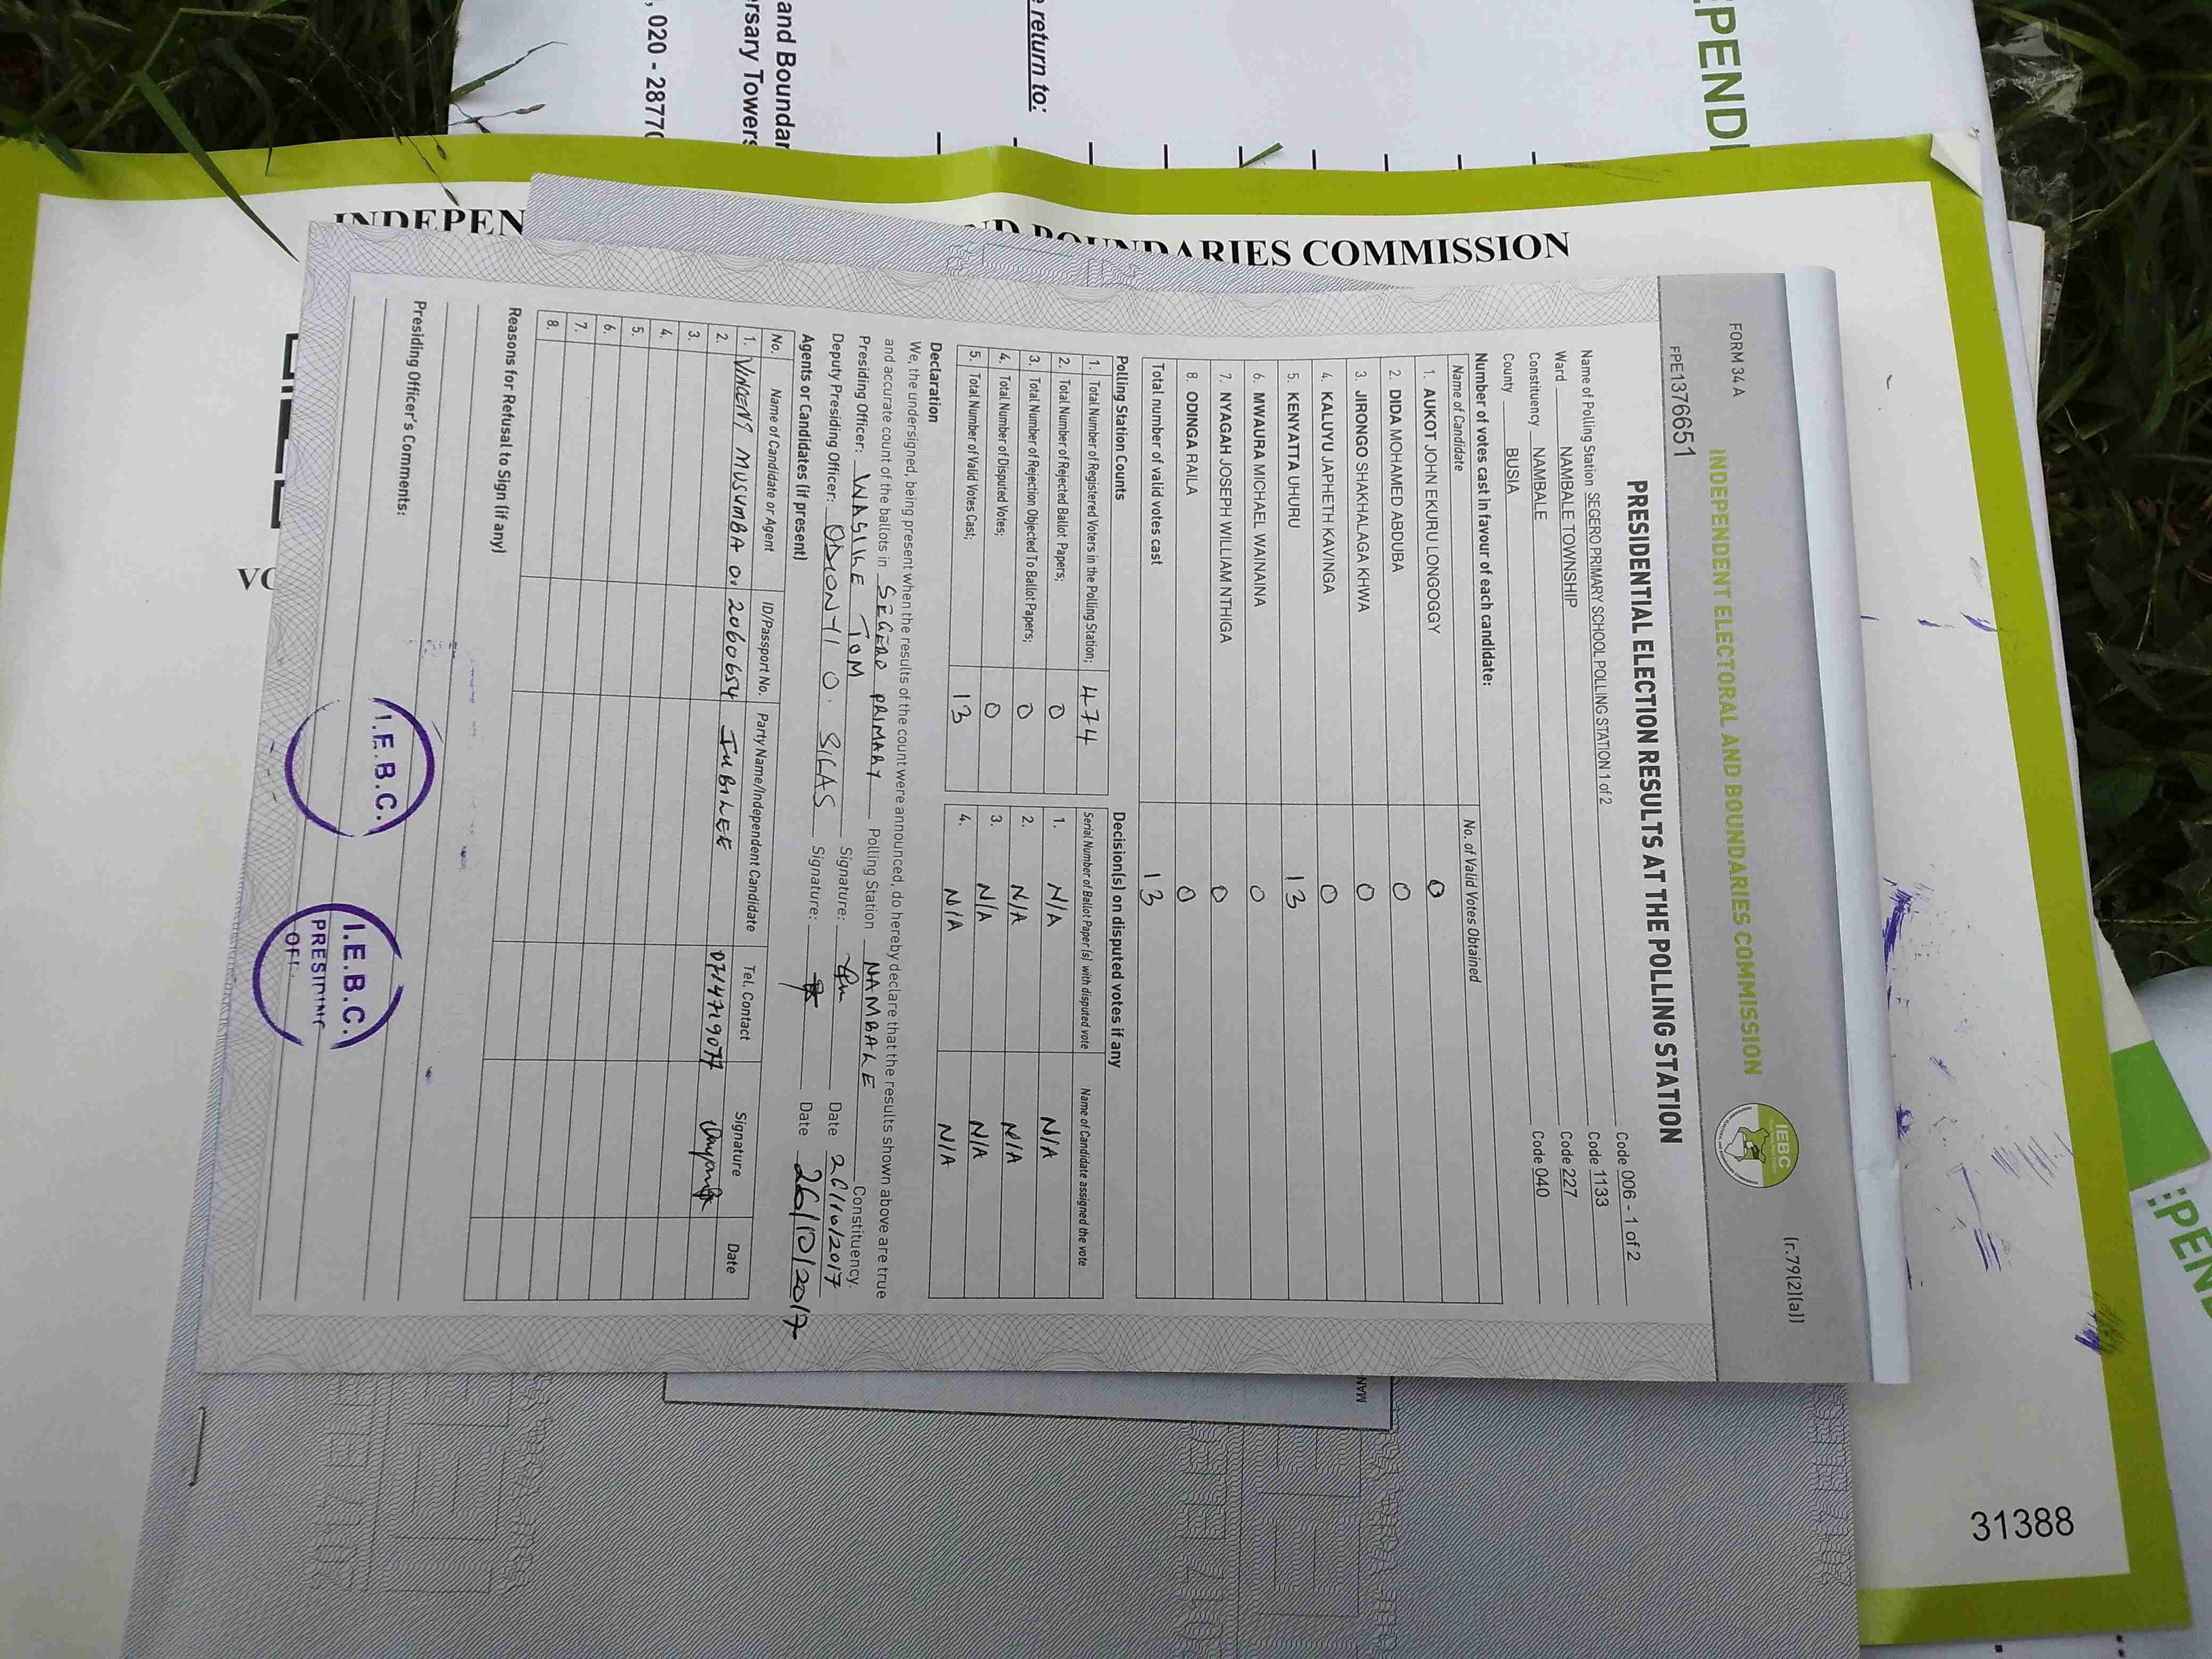 FORM 34 A
(r.79(2)(a))
INDEPENDENT ELECTORAL AND BOUNDARIES COMMISSION
IEBC
FPE1376651
PRESIDENTIAL ELECTION RESULTS AT THE POLLING STATION
Name of Polling Station SEGERO PRIMARY SCHOOL POLLING STATION 1 of 2 Code 006 - 1 of 2
Ward NAMBALE TOWNSHIP Code 1133
Constituency NAMBALE Code 227
County BUSIA Code 040
Number of votes cast in favour of each candidate:
Name of Candidate No. of Valid Votes Obtained
1. AUKOT JOHN EKURU LONGOGGY 0
2. DIDA MOHAMED ABDUBA 0
3. JIRONGO SHAKHALAGA KHWA 0
4. KALUYU JAPHETH KAVINGA 0
5. KENYATTA UHURU 13
6. MWAURA MICHAEL WAINAINA 0
7. NYAGAH JOSEPH WILLIAM NTHIGA 0
8. ODINGA RAILA 0
Total number of valid votes cast 13
Polling Station Counts
1. Total Number of Registered Voters in the Polling Station; 474
2. Total Number of Rejected Ballot Papers; 0
3. Total Number of Rejection Objected To Ballot Papers; 0
4. Total Number of Disputed Votes; 0
5. Total Number of Valid Votes Cast; 13
Decision(s) on disputed votes if any
Serial Number of Ballot Paper (s) with disputed vote Name of Candidate assigned the vote
1. N/A N/A
2. N/A N/A
3. N/A N/A
4. N/A N/A
Declaration
We, the undersigned, being present when the results of the count were announced, do hereby declare that the results shown above are true
and accurate count of the ballots in SEGERO PRIMARY Polling Station NAMBALE Constituency.
Presiding Officer: WASIKE TOM Signature: Date 26/10/2017
Deputy Presiding Officer: O. SILAS Signature: Date 26/10/2017
Agents or Candidates (if present)
No. Name of Candidate or Agent ID/Passport No. Party Name/Independent Candidate Tel. Contact Signature Date
1. VINCENT MUSUMBA O. 20606654 JUBILEE 0714719077
2.
3.
4.
5.
6.
7.
8.
Reasons for Refusal to Sign (if any)
Presiding Officer's Comments:
I.E.B.C.
I.E.B.C.
PRESIDING
OFF
INDEPEN
ND BOUNDARIES COMMISSION
VO
31388
MAN
e return to:
and Boundar
rsary Towers
, 020 - 28770
EPENDI
EPEN